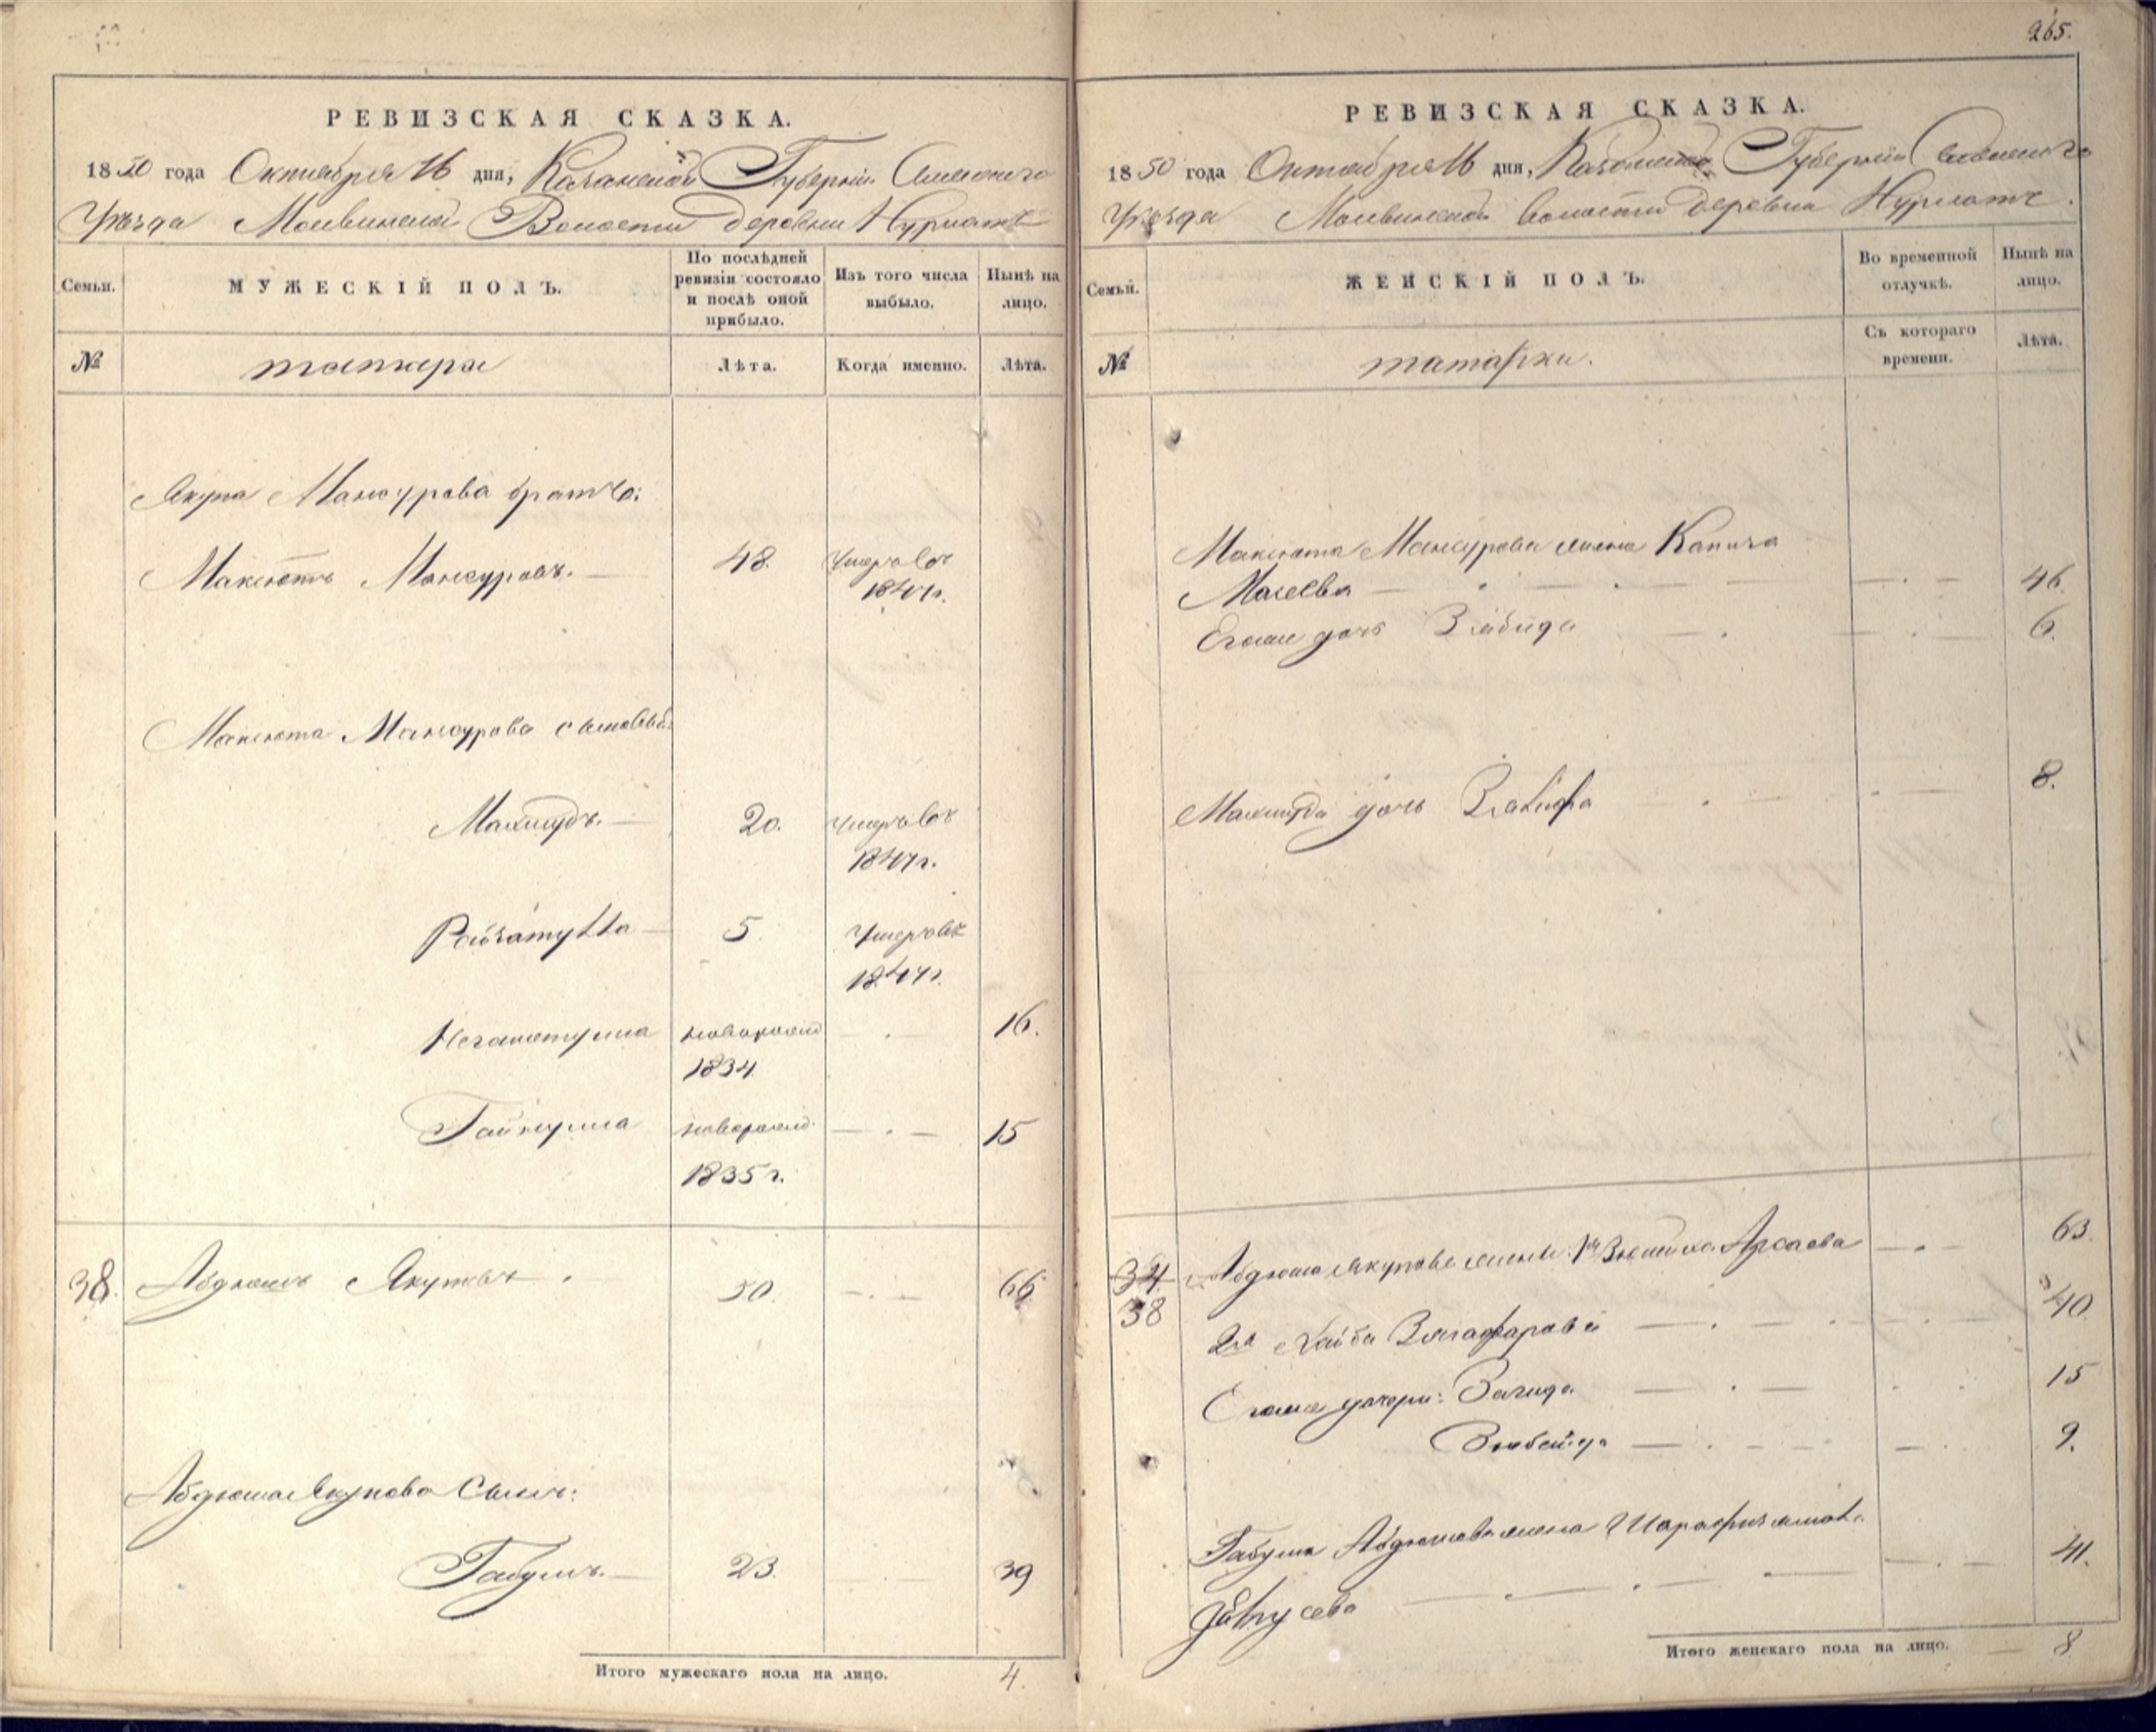 265.
РЕВИЗСКАЯ СКАЗКА.
1850 года Октября 16 дня, Казанской Губернiи
Уѣзда Волости деревни Нурлатъ
Семьи.
МУЖЕСКІЙ ПОЛЪ.
По послѣдней ревизіи состояло и послѣ оной прибыло.
Изъ того числа выбыло.
Нынѣ на лицо.
№
татара
Лѣта.
Когда именно.
Лѣта.
Якупа Мансурова братъ:
Максютъ Мансуровъ. 48. Умеръ въ
1847г.
Максюта Мансурова сыновья:
Махмудъ. 20. Умеръ въ
1847г.
5. Умеръ въ
1847г.
Негаметулла новорожд 16.
1834
Гайнулла новорожд. 15
1835 г.
38. Абдюшъ Якуповъ 50. 66
Абдюша Якупова Сынъ:
Габушъ. 23. 39
Итого мужескаго пола на лицо. 4.
РЕВИЗСКАЯ СКАЗКА.
1850 года Октября 16 дня, Казанской Губернiи
Уѣзда волости деревни Нурлатъ.
Семьи.
ЖЕНСКІЙ ПОЛЪ.
Во временной отлучкѣ.
Нынѣ на лицо.
№
татарки.
Съ котораго времени.
Лѣта.
Максюта Мансурова жена
46.
Егоже дочь Зябида 6.
Махмуда дочь 8.
34 Абдюша Якупова жены: 1я 63
38
2я 40
Егоже дочери: Загида 15
Зюбейда 9.
Габуша Абдюшева жена
41.
Итого женскаго пола на лицо. 8